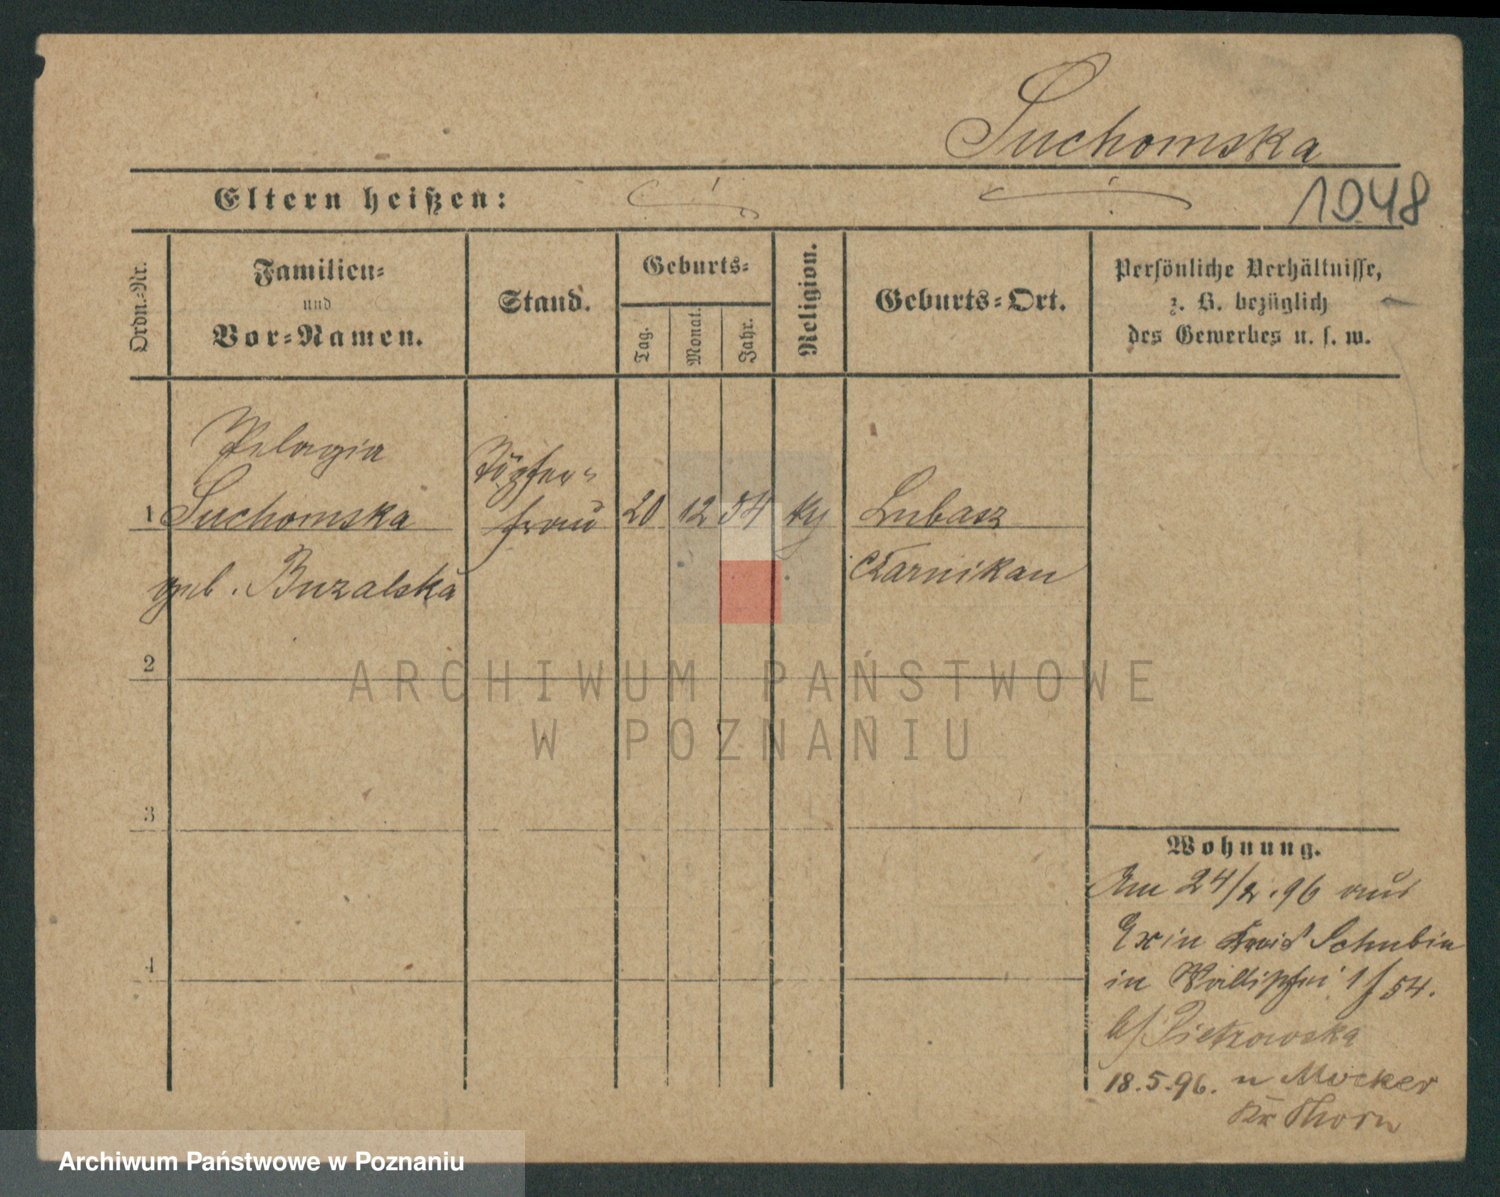 Suchomska
Eltern heißen:
1048
Ordn.-Nr.
Familien-
und
Vor-Namen.
Stand.
Geburts-
Tag.
Monat.
Jahr.
Religion.
Geburts-Ort.
Persönliche Verhältnisse,
z. B. bezüglich
des Gewerbes u. s. w.
Pelagia
Töpfer-
1 Suchomska frau 20 12 54 Lubasz
geb. Buzalska Czarnikau
2
ARCHIWUM PAŃSTWOWE
W POZNANIU
3
Wohnung.
Am 24/2.96 aus
Exin Kreis Schubin
4
in Wallischei 1/54.
b/ Pietrowska
18.5.96. n Mocker
Kr Thorn
Archiwum Państwowe w Poznaniu